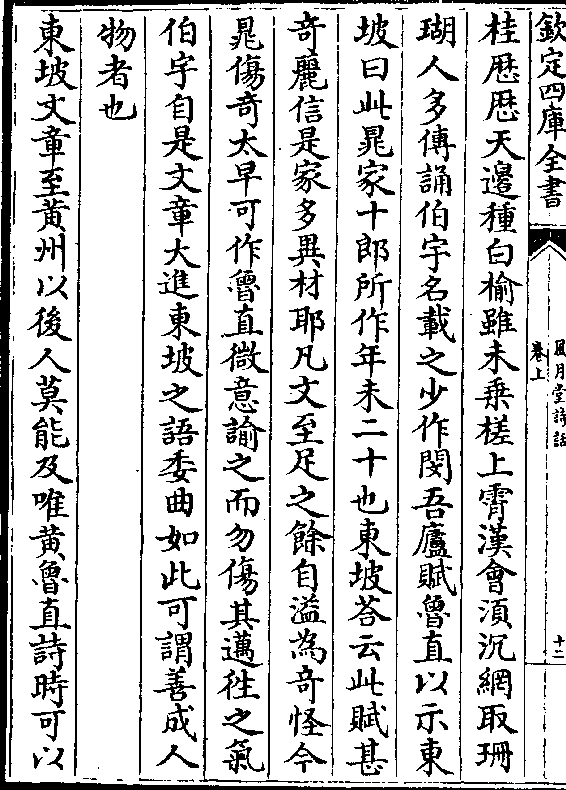 欽定四庫全書
風月堂詩話
卷上
十二
桂厯厯天邊種白榆雖未乗槎上霄漢會湏沉網取珊
瑚人多傳誦伯宇名載之少作閔吾廬賦魯直以示東
坡曰此晁家十郎所作年未二十也東坡荅云此賦甚
竒麗信是家多異材耶凡文至足之餘自溢為竒怪今
晁傷竒太早可作魯直微意諭之而勿傷其邁徃之氣
伯宇自是文章大進東坡之語委曲如此可謂善成人
物者也
東坡文章至黄州以後人莫能及唯黄魯直詩時可以